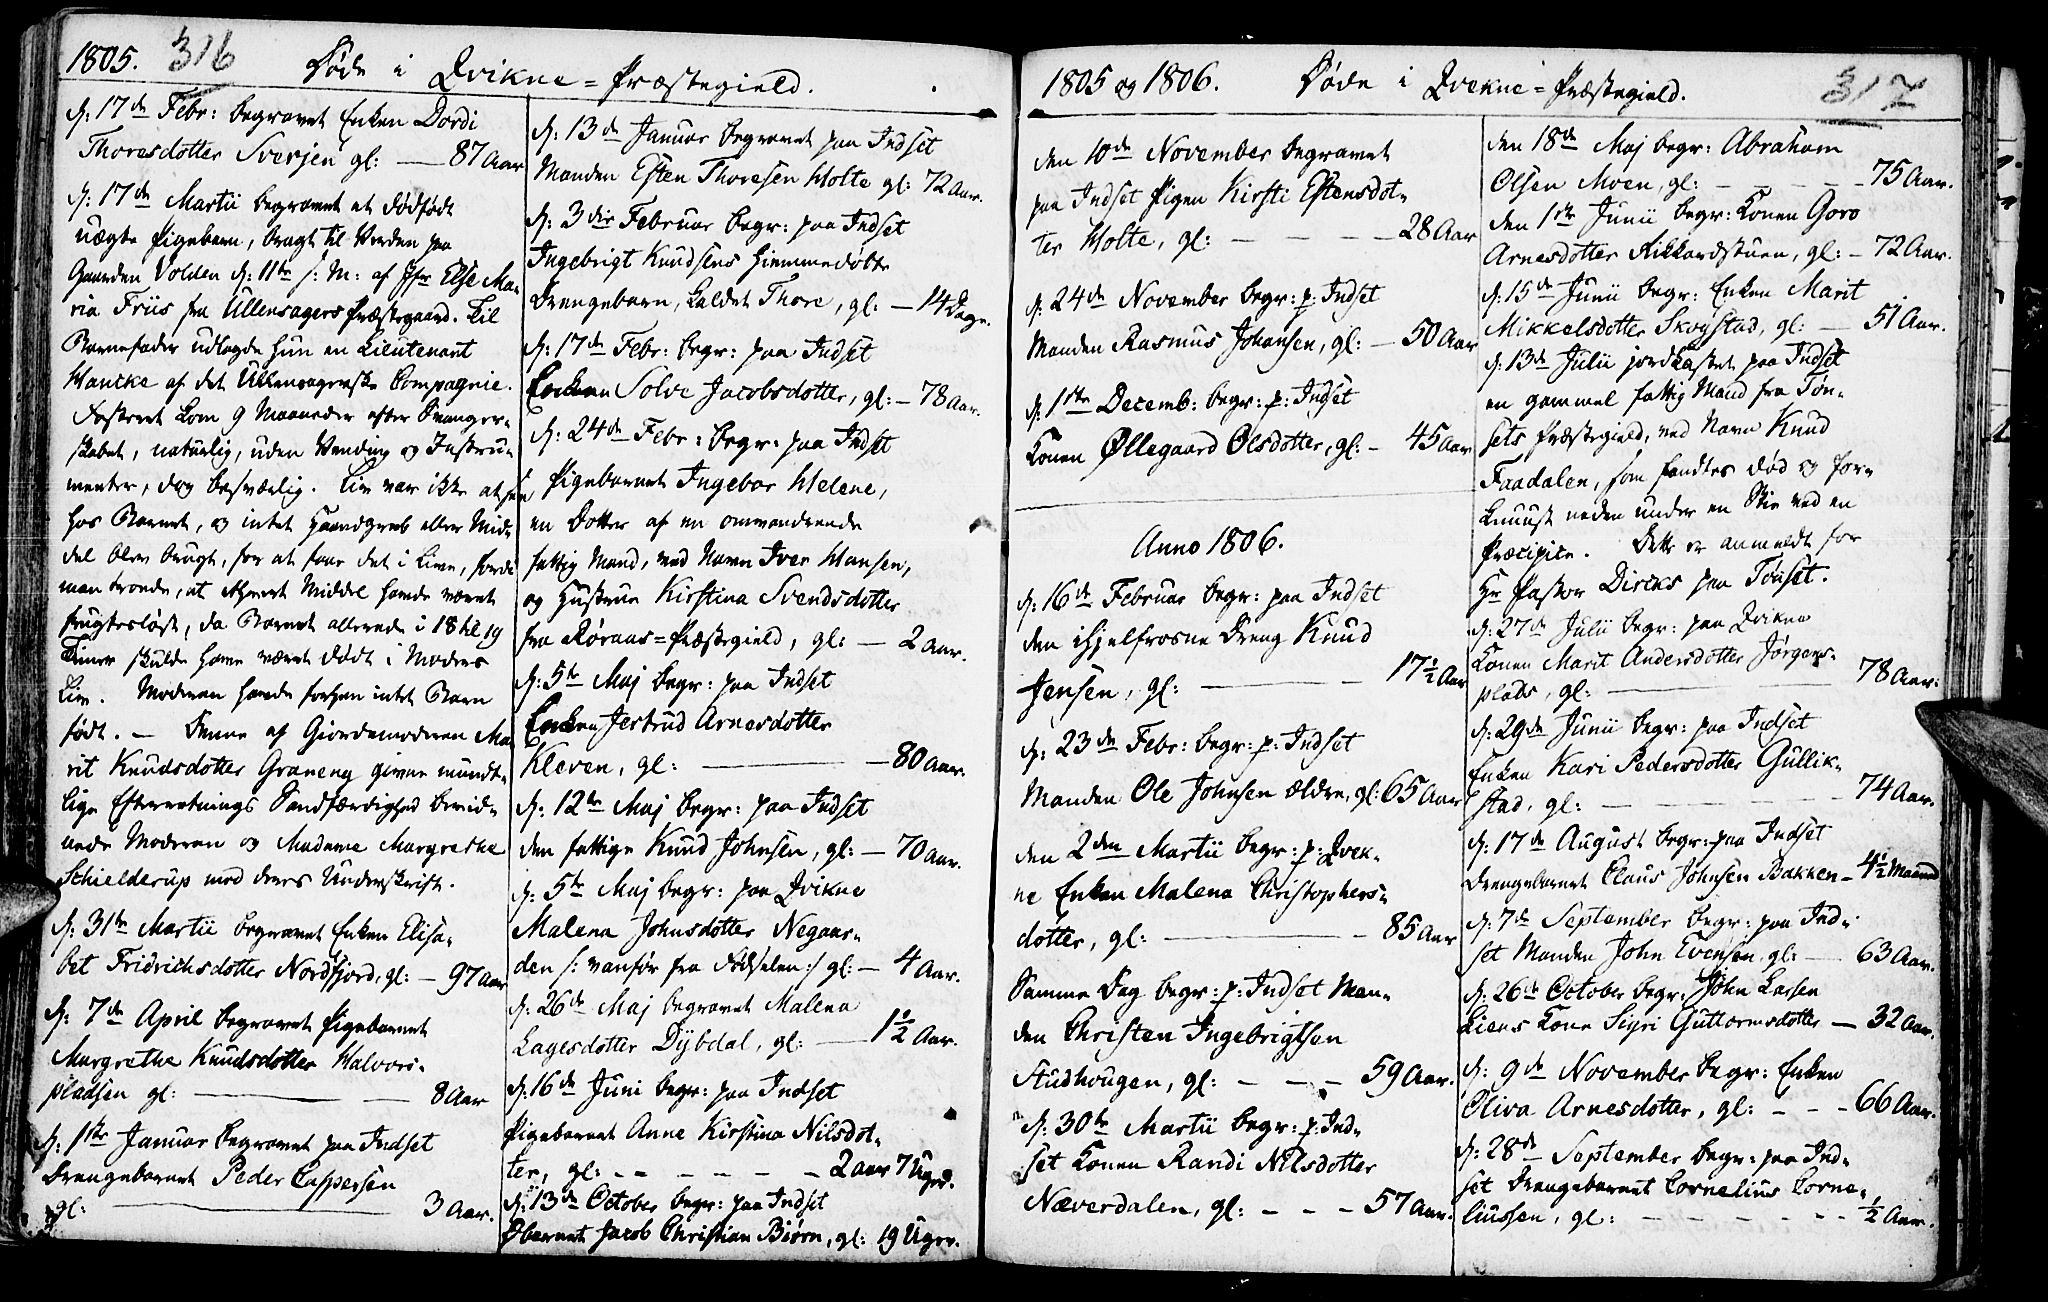 1805. 316
Døde i Qvikne=Præstegield.
d: 17de Febr: begravet Enken Dordi
Thoresdotter Sverjen gl: — 87 Aar
d: 17de Martii begravet et dødfødt
uægte Pigebarn, bragt til Verden paa
Gaarden Volden d: 11te s: M: af Jfr Else Ma-
ria Friis fra Ullensagers Præstegaard. Til
Barnefader udlagde hun en Lieutenant
Hancke af det Ullensagerske Compagnie.
Fosteret kom 9 Maaneder efter Svanger-
skabet, naturlig, uden Vending og Instru-
menter, dog besværlig. Liv var ikke at see
hos Barnet, og intet Haandgreb eller Mid-
del blev brugt, for at faae det i Live, fordi
man troede, at ethvert Middel havde været
frugtesløst, da Barnet allerede i 18 til 19
Timer skulde have været dødt i Moders
Liv. Moderen havde forhen intet Barn
født. — Denne af Giordemoderen Ma-
rit Knudsdotter Graneng givne mundt-
lige Efterretnings Sandfærdighed bevid-
nede Moderen og Madame Margrethe
Schielderup med deres Underskrift.
d: 31te Martii begravet Enken Elisa-
bet Fridrichsdotter Nordfjord, gl: — 97 Aar
d: 7de April begravet Pigebarnet
Margrethe Knudsdotter Halvors-
pladsen gl: — — 8 Aar
d: 1ste Januar begravet paa Indset
Drengebarnet Peder Caspersen
gl: — 3 Aar.
d: 13de Januar begravet paa Indset
Manden Esten Thoresen Holte gl: 72 Aar.
d: 3die Februar begr: paa Indset
Ingebrigt Knudsens hiemmedøbte
Drengebarn, kaldet Thore, gl: — 14 Dage.
d: 17de Febr: begr: paa Indset
Enken Solve Jacobsdotter, gl: — 78 Aar.
d: 24de Febr: begr: paa Indset
Pigebarnet Ingebor Helene,
en Dotter af en omvandrende
fattig Mand, ved Navn Iver Hansen,
og Hustrue Kirstina Svendsdotter
fra Røraas=Præstegield, gl: — 2 Aar.
d: 5te Maj begr: paa Indset
Enken Jertrud Arnesdotter
Kleven, gl: — — 80 Aar.
d: 12te Maj begr: paa Indset
den fattige Knud Johnsen, gl: — 70 Aar.
d: 5te Maj begr: paa Qvikne
Malena Johnsdotter Negaar-
den /: vanfør fra Fødselen :/ gl: — 4 Aar.
d: 26de Maj begravet Malena
Lagesdotter Dÿbdal, gl: — 1½ Aar.
d: 16de Juni begr: paa Indset
Pigebarnet Anne Kirstina Nilsdot-
ter, gl: - - - - - - 2 Aar 7 Uger.
d: 13de October begr: paa Indset
Øbarnet Jacob Christian Biørn, gl: 19 Uger.
1805 og 1806. Døde i Qvikne=Præstegield. 317
den 10de November begravet
paa Indset Pigen Kirsti Estensdot-
ter Holte, gl: — — — — 28 Aar
d: 24de November begr: p: Indset
Manden Rasmus Johansen, gl: — 50 Aar
d: 1ste Decemb: begr: p: Indset
Konen Øllegaard Olsdotter, gl: — 45 Aar
Anno 1806.
d: 16de Februar begr: paa Indset
den ihjelfrosne Dreng Knud
Jensen, gl: — — 17½ Aar
d: 23de Febr: begr: p: Indset
Manden Ole Johnsen ældre, gl: 65 Aar
den 2den Martii begr: p: Qvik-
ne Enken Malena Christophers-
dotter, gl: — — 85 Aar
Samme Dag begr: p: Indset Man-
den Christen Ingebrigtsen
Studhougen, gl: — — — 59 Aar.
d: 30te Martii begr: p: Ind-
set Konen Randi Nilsdotter
Næverdalen, gl: — — — 57 Aar.
den 18de Maj begr: Abraham
Olsen Moen, gl: — — — — 75 Aar.
den 1ste Junii begr: Konen Goro
Arnesdotter Rikkardstuen, gl: — 72 Aar.
d: 15de Junii begr: Enken Marit
Mikkelsdotter Skogstad, gl: — 51 Aar.
d: 13de Julii jordkastet paa Indset
en gammel fattig Mand fra Tøn-
sets Præstegield, ved Navn Knud
Faadalen, som fandtes død og for-
knuust neden under en Sti ved en
Præcipice. Dette er anmeldt for
Hr Pastor Dircks paa Tønset.
d: 27de Julii begr: paa Qvikne
Konen Marit Andersdotter Jørgens-
plads, gl: — 78 Aar.
d: 29de Junii begr: paa Indset
Enken Kari Pedersdotter Gullik-
stad, gl: — — — — 74 Aar.
d: 17de August begr: paa Indset
Drengebarnet Claus Johnsen Bakken — 4½ Maaned
d: 7de September begr: paa Ind-
set Manden John Evensen, gl: — 63 Aar.
d: 26de October begr: John Larsen
Liens Kone Sigri Guttormsdotter — 32 Aar.
d: 9de November begr: Enken
Oliva Arnesdotter, gl: - - - 66 Aar.
d: 28de September begr: paa Ind-
set Drengebarnet Cornelius Corne-
liussen, gl: - - - - - - ½ Aar.